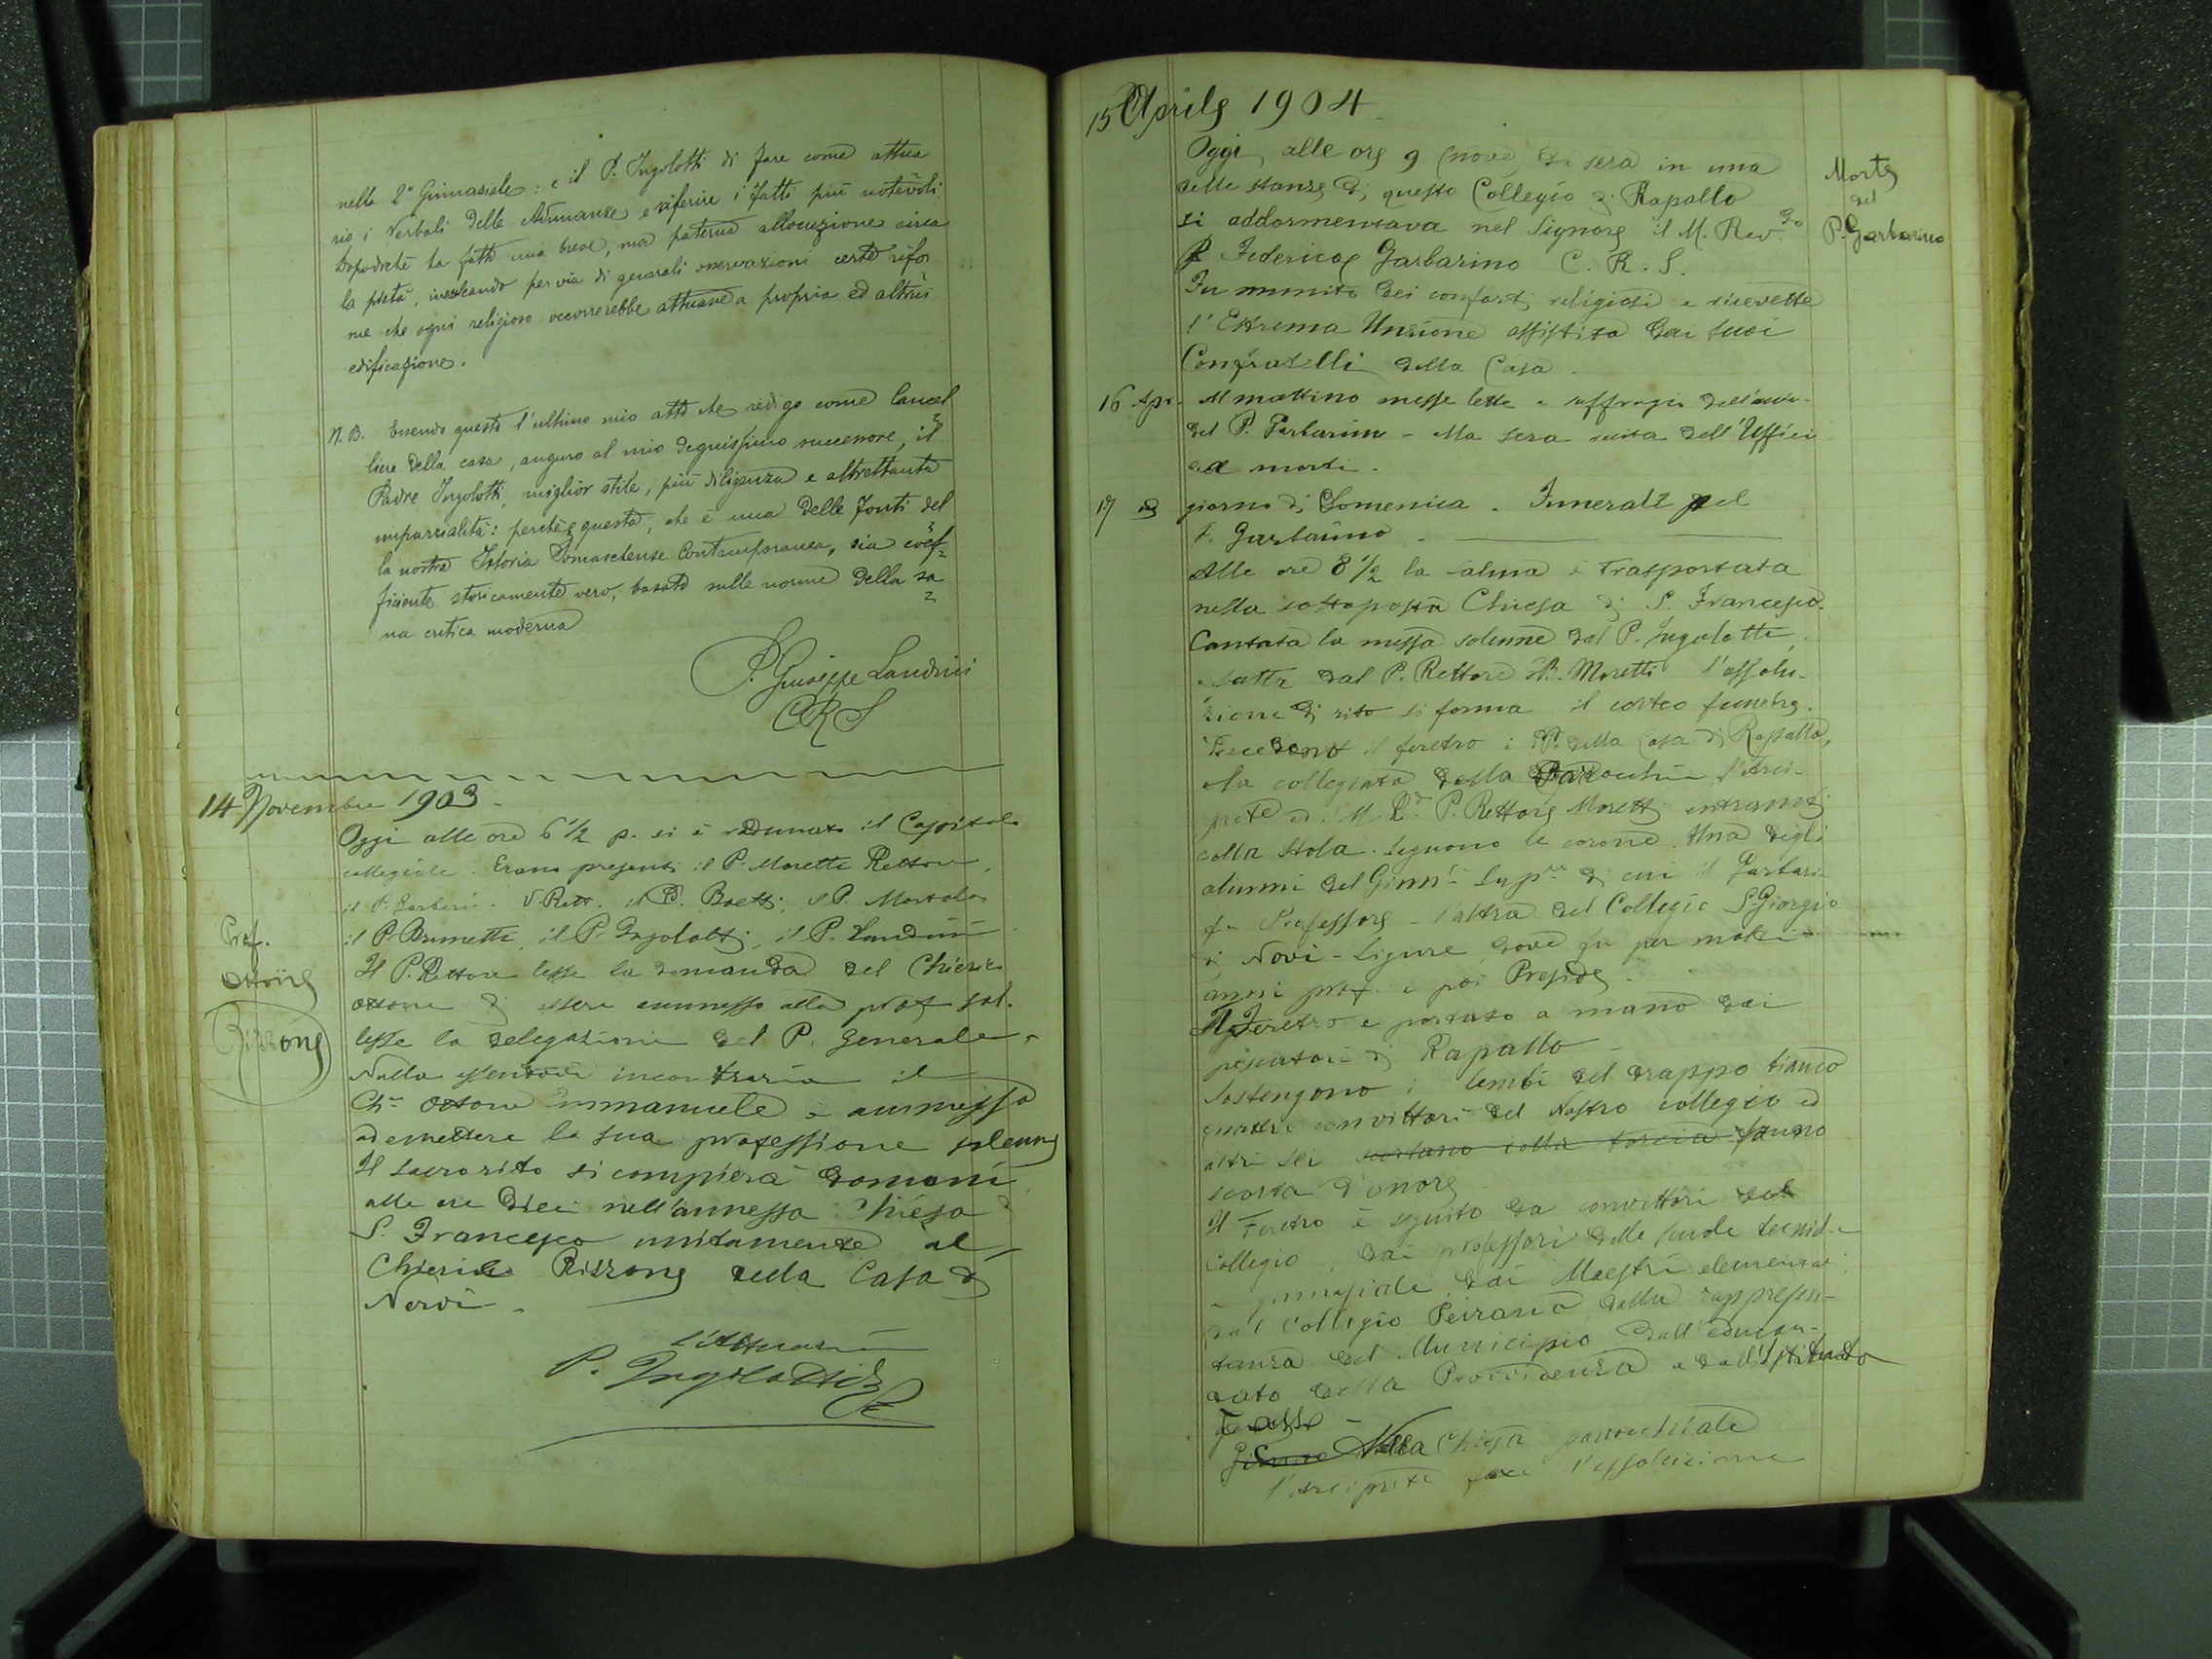 nella 2ª Ginnasiale: e il P. Ingolotti di fare come attua
rio i Verbali delle Adunanze e riferire i fatti più notevoli.
Dopodiché ha fatto una breve, ma paterna allocuzione circa
la pietà, inculcando per via di generali osservazioni certe rifor
me che ogni religioso occorrerebbe attuare a propria ed altrui
edificazione.
N. B. Essendo questo l'ultimo mio atto che redigo come Cancel
liere della casa, auguro al mio degnissimo successore, il
Padre Ingolotti, miglior stile, più diligenza e altrettanta
imparzialità: perchè questa, che è una delle fonti del
la nostra Istoria Somaschense Contemporanea, sia coef
ficiente storicamente vero, basato sulle norme della sa
na critica moderna
P. Giuseppe Landini
CRS
14 Novembre 1903 -
Oggi alle ore 6 1/2 p. si è radunato il Capitolo
collegiale. Erano presenti il P. Moretti Rettore,
il P. Garbarino V. Rett. il P. Boeti, il P. Mortola
il P. Brunetti, il P. Ingolotti, il P. Landini
Il P. Rettore lesse la domanda del Chierico
Ottone di essere ammesso alla prof sol.
lesse la delegazione del P. Generale.
Nulla essendovi in contrario il
Ch. Ottone Emmanuele è ammesso
ad emettere la sua professione solenne
Il sacro rito si compierà domani
alle ore dieci nell'annessa Chiesa di
S. Francesco unitamente al
Chierico Rizzone della Casa di
Nervi -
Prof.
Ottone
Rizzone
l'Attuario
P. Ingolotti
15 Aprile 1904
Oggi alle ore 9 (nove) di sera in una
delle stanze di questo Collegio di Rapallo
si addormentava nel Signore il M. Rev.do
P. Federico Garbarino C. R. S.
Fu munito dei conforti religiosi e ricevette
l'Estrema Unzione assistito dai suoi
Confratelli della Casa.
Morte
del
P. Garbarino
16 Apr. Al mattino messe lette a suffragio dell'anima
del P. Garbarino - Alla sera recita dell'Ufficio
dei morti.
17 giorno di Domenica. Funerali del
P. Garbarino -
Alle ore 8 1/2 la salma è trasportata
nella sottoposta Chiesa di S. Francesco.
Cantata la messa solenne dal P. Ingolotti,
e fatta dal P. Rettore P. Moretti l'assolu-
zione di rito si forma il corteo funebre.
Precedono il feretro i PP. della Casa di Rapallo,
la collegiata della Parrocchia l'Arci-
prete ed il M. R. P. Rettore Moretti entrambi
colla stola. Seguono le corone. Una degli
alunni del Ginn. Sup. di cui il Garbari
fu Professore - l'altra del Collegio S. Giorgio
di Novi-Ligure dove fu per molti
anni prof. e poi Preside -
Il Feretro è portato a mano dai
pescatori di Rapallo -
Sostengono i lembi del drappo bianco
quattro convittori del Nostro collegio ed
altri sei portano colla torcia fanno
scorta d'onore
Il Feretro è seguito da convittori del
Collegio, dai professori delle scuole tecniche
e ginnasiale, dai Maestri elementari,
dal Collegio Peirano, dalla rappresen-
tanza del Municipio dall'educan-
dato della Provvidenza e dall'Istituto
Nella Chiesa parrocchiale
l'arciprete fece l'assoluzione